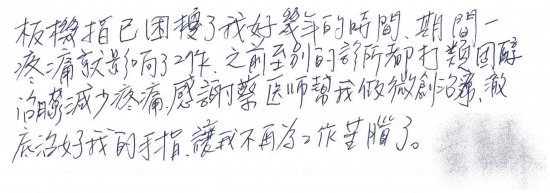 板機指已困擾了我好幾年的時間、期間一
疼痛就影响了工作、之前至別的診所都打類固醇
治療減少疼痛、感謝蔡医師幫我做微創治療、澈
底治好我的手指、讓我不再為工作苦腦了。